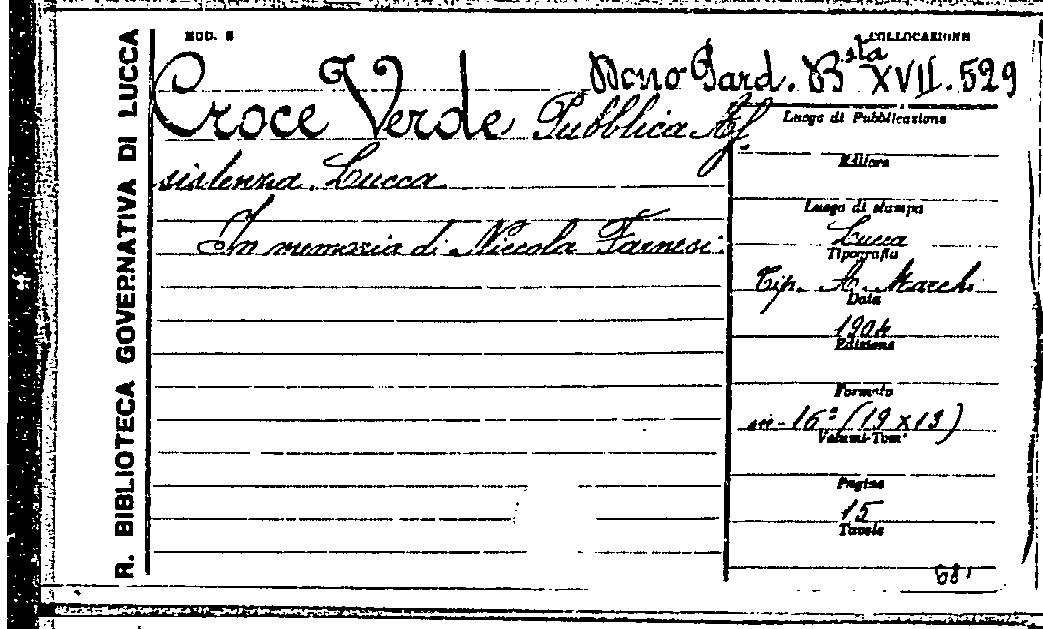 R. BIBLIOTECA GOVERNATIVA DI LUCCA
MOD. 8
COLLOCAZIONE
Pard. Bsta XVII. 529
Croce Verde Pubblica As
sistenza. Lucca
In memoria di Niccola Farnesi.
Luogo di Pubblicazione
Editore
Luogo di stampa
Lucca
Tipografia
Tip. A. Marchi
Data
1904
Edizione
Formato
in-16° (19 x 13)
Volumi-Tomi
Pagine
15
Tavole